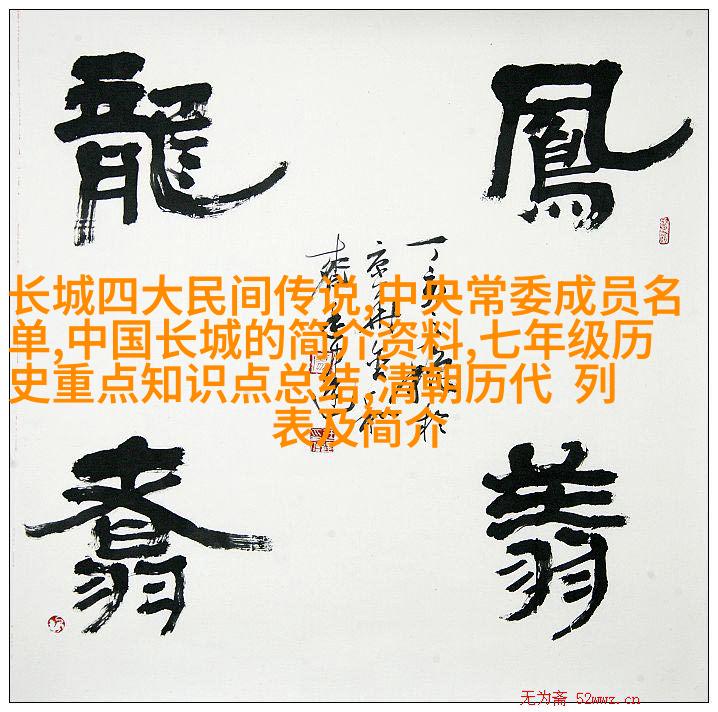 龍
鳳
长城四大民间传说,中央常委成员名
单,中国长城的简介资料,七年级历
史重点知识点总结,清朝历代 列
表及简介
翥
翔
无为斋 52wwz.cn